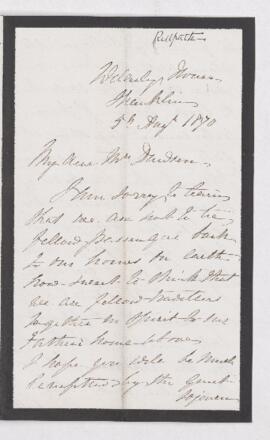 Redpath
Wellesley House
Shanklin
5th Augt 1870
My dear Mrs Dawson
I am sorry to
that we are not to be
fellow passengers back
to our homes on earth
how sweet to think that
we are fellow travellers
together in spirit to our
Father's home above
I hope you will be much
by the quiet
sojourn